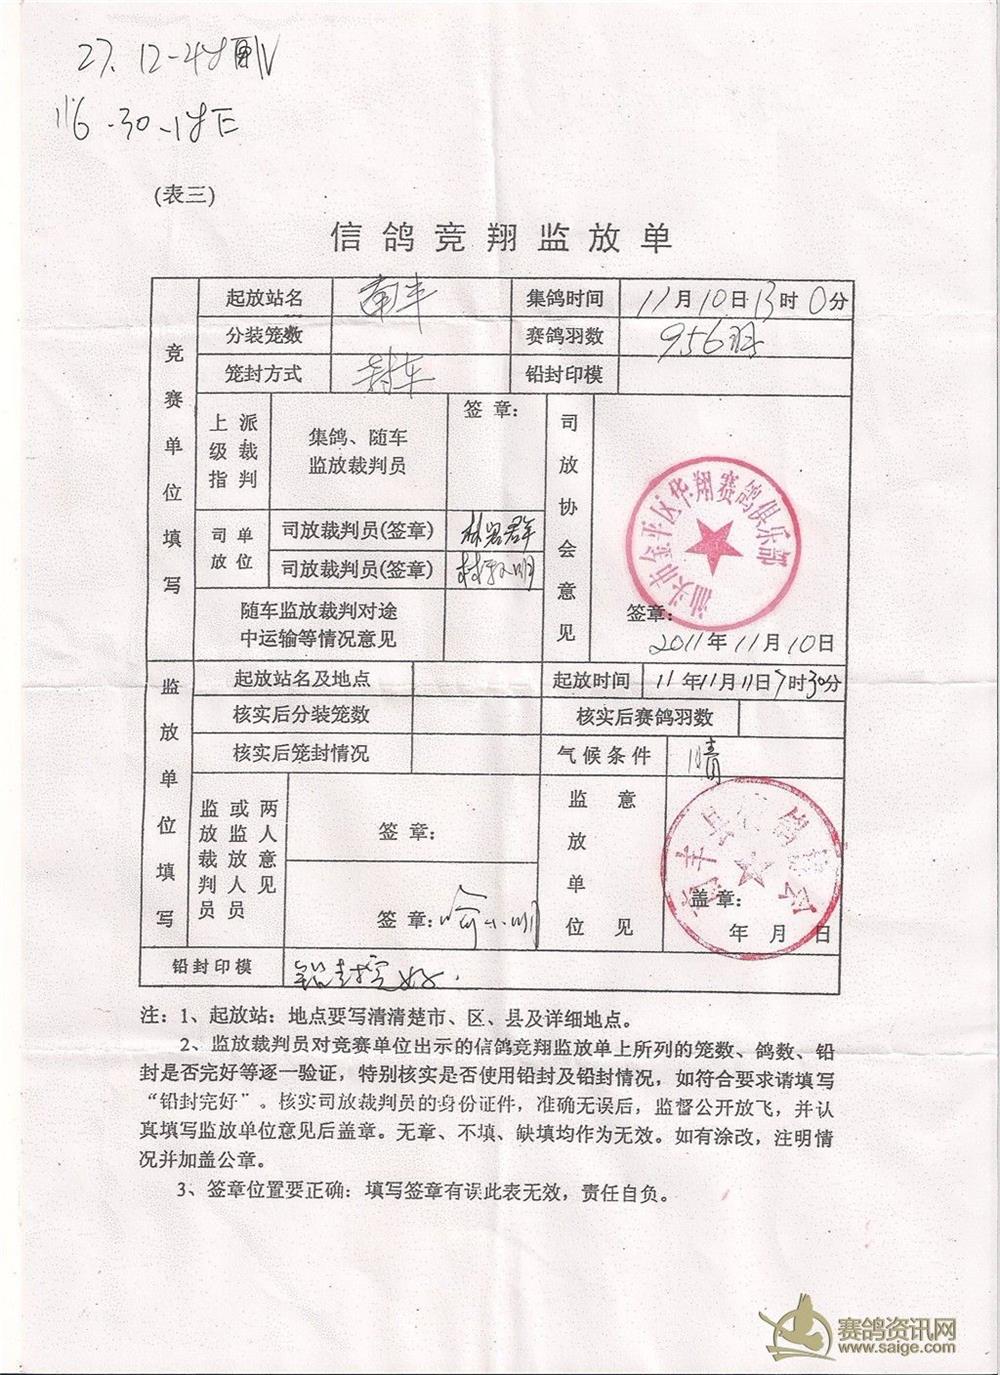 27. 12-4
116-30-1
(表三)
信鸽竞翔监放单
竞赛单位填写
起放站名 南丰 集鸽时间 11月10日13时0分
分装笼数 赛鸽羽数 956羽
笼封方式 封车 铅封印模
上级指派裁判 集鸽、随车监放裁判员 签章:
司放单位 司放裁判员(签章)
司放裁判员(签章)
随车监放裁判对途中运输等情况意见
司放协会意见
汕头市金平区华翔赛鸽俱乐部
签章:
2011年11月10日
监放单位填写
起放站名及地点 起放时间 11年11月11日7时30分
核实后分装笼数 核实后赛鸽羽数
核实后笼封情况 气候条件 晴
监放裁判员或监放人员两人意见 签章:
签章: 喻小明
监放单位意见
南丰县信鸽协会
盖章:
年 月 日
铅封印模 铅封完好.
注: 1、起放站: 地点要写清清楚市、区、县及详细地点。
2、监放裁判员对竞赛单位出示的信鸽竞翔监放单上所列的笼数、鸽数、铅
封是否完好等逐一验证, 特别核实是否使用铅封及铅封情况, 如符合要求请填写
“铅封完好”。核实司放裁判员的身份证件, 准确无误后, 监督公开放飞, 并认
真填写监放单位意见后盖章。无章、不填、缺填均作为无效。如有涂改, 注明情
况并加盖公章。
3、签章位置要正确: 填写签章有误此表无效, 责任自负。
赛鸽资讯网
www.saige.com